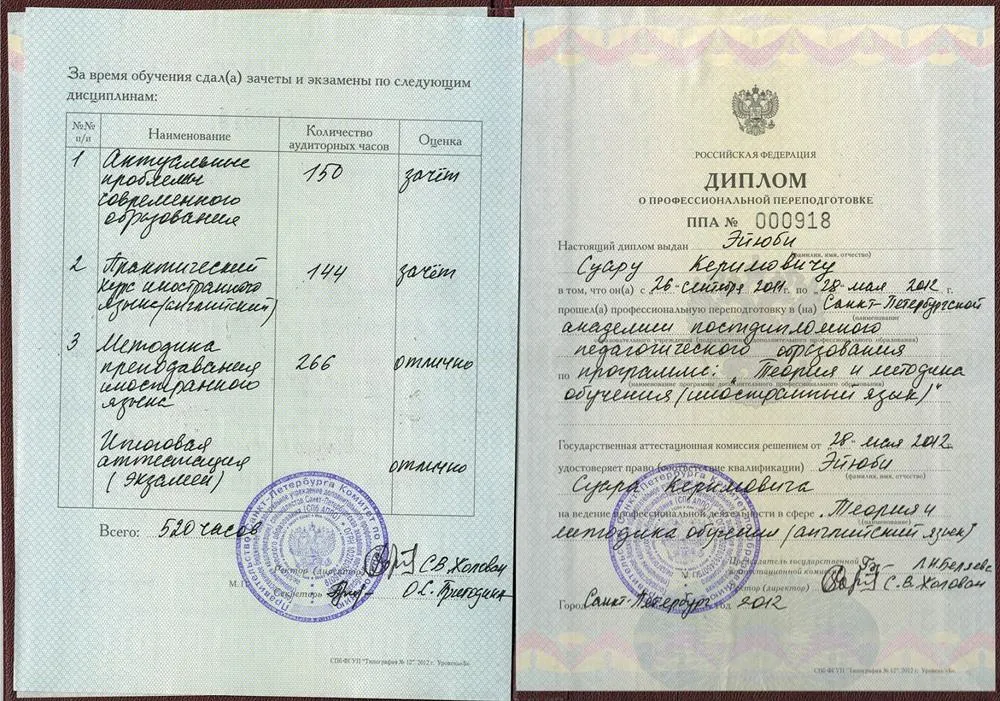 За время обучения сдал(а) зачеты и экзамены по следующим
дисциплинам:
№№ п/п
Наименование
Количество аудиторных часов
Оценка
1 Актуальные 150 зачёт
проблемы
современного
образования
2 Практический 144 зачёт
курс иностранного
языка (английский)
3 Методика 266 отлично
преподавания
иностранного
языка
Итоговая
аттестация отлично
(экзамен)
Всего: 520 часов
Ректор (директор) С.В. Жолован
М.П.
Секретарь
СПб ФГУП "Типография № 12" 2012 г. Уровень «Б»
РОССИЙСКАЯ ФЕДЕРАЦИЯ
ДИПЛОМ
О ПРОФЕССИОНАЛЬНОЙ ПЕРЕПОДГОТОВКЕ
ППА № 000918
Настоящий диплом выдан Эйюби
(фамилия, имя, отчество)
Суару Керимовичу
в том, что он(а) с 26 сентября 2011 г. по 28 мая 2012 г.
прошел(а) профессиональную переподготовку в (на) Санкт-Петербургской
(наименование
академии постдипломного
образовательного учреждения (подразделения) дополнительного профессионального образования)
педагогического образования
по программе: "Теория и методика
(наименование программы дополнительного профессионального образования)
обучения (иностранный язык)"
Государственная аттестационная комиссия решением от 28 мая 2012
удостоверяет право (соответствие квалификации) Эйюби
(фамилия, имя, отчество)
Суара Керимовича
на ведение профессиональной деятельности в сфере "Теория и
(наименование)
методика обучения (английский язык)
Председатель государственной
аттестационной комиссии
Ректор (директор) С.В. Жолован
М.П.
Город Санкт-Петербург год 2012
СПб ФГУП "Типография № 12" 2012 г. Уровень «Б»